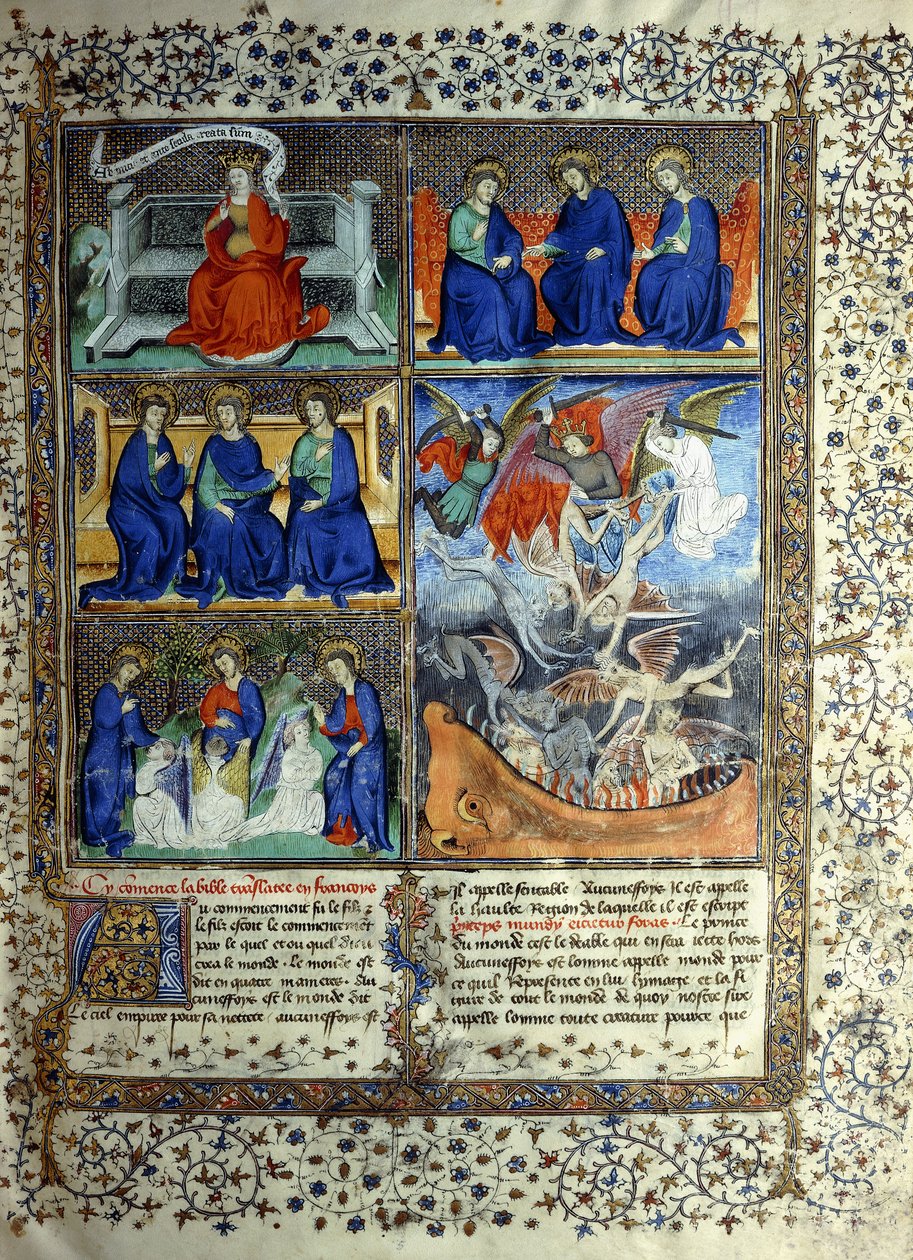 Ab initio et ante secula creata sum
Cy comence la bible translatee en francoys
Au commencement fu le filz &
le filz estoit le commencemet
par le quel et ou quel dieu
crea le monde. Le monde est
dit en quatre manieres. Au
cuneffoys est le monde dit
Le ciel empire pour sa nettete. aucuneffoys est
Il appelle sensable. Aucuneffoys il est appelle
la haulte Region de laquelle il est escript
princeps mundy eicietur foras. Le prince
du monde cest le deable qui en sera iette hors
Aucuneffoys est lomme appelle monde pour
ce quil Represente en luy lymage et la fi
gure de tout le monde de quoy nostre sire
appelle lomme toute creature pource que